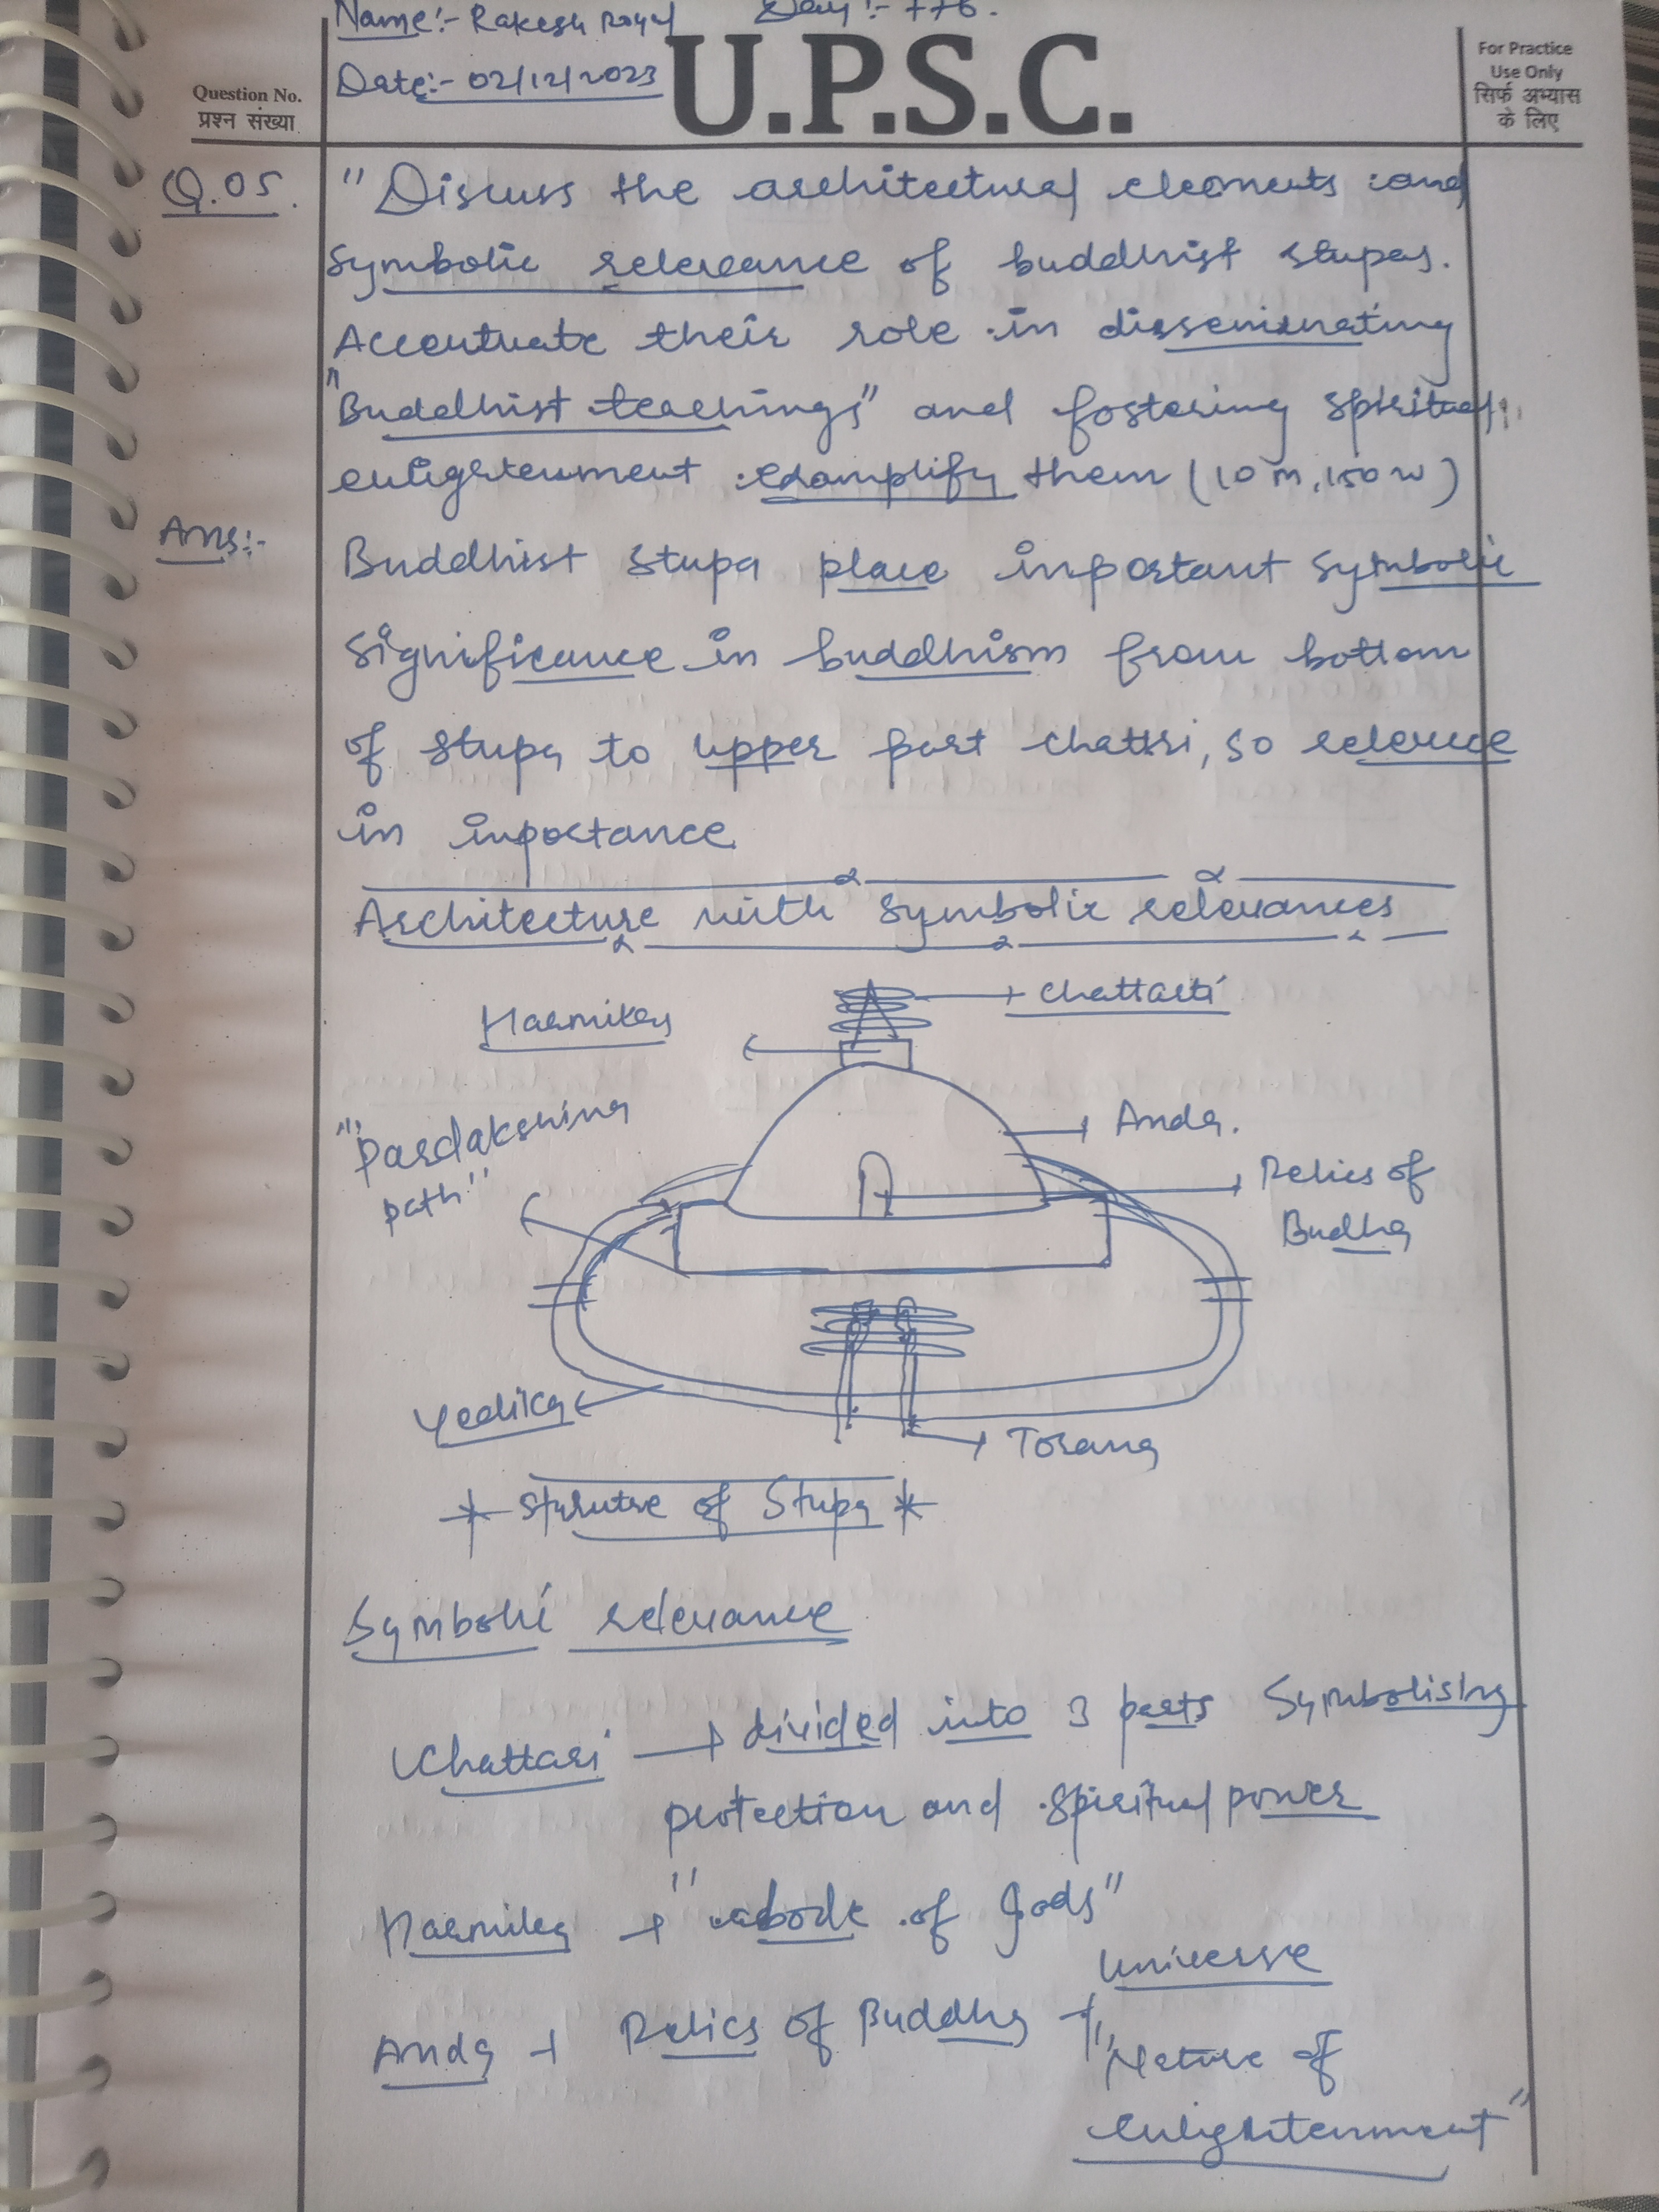 Name:- Rakesh Day:- 776.
Date:- 02/12/2023
U.P.S.C.
Question No.
प्रश्न संख्या
For Practice
Use Only
सिर्फ अभ्यास
के लिए
Q.05. "Discuss the architectural elements and
symbolic relevance of buddhist stupas.
Accentuate their role in disseminating
"Buddhist teachings" and fostering spiritual
enlightenment examplify them (10 m, 150 w)
Ans:- Buddhist stupa place important symbolic
significance in buddhism from bottom
of stupa to upper part chattri, so relevence
in inportance
Architecture with symbolic relevances
Harmika
Chattarti
"Pardakshina
path"
Anda.
Relics of
Budha
Vedika
Torana
* Struture of Stupa *
Symbolic relevance
Chattari → divided into 3 parts Symbolising
protection and spiritual power
Harmika → "abode of Gods"
Anda → Relics of Buddha → Universe
"Nature of
enlightenment"